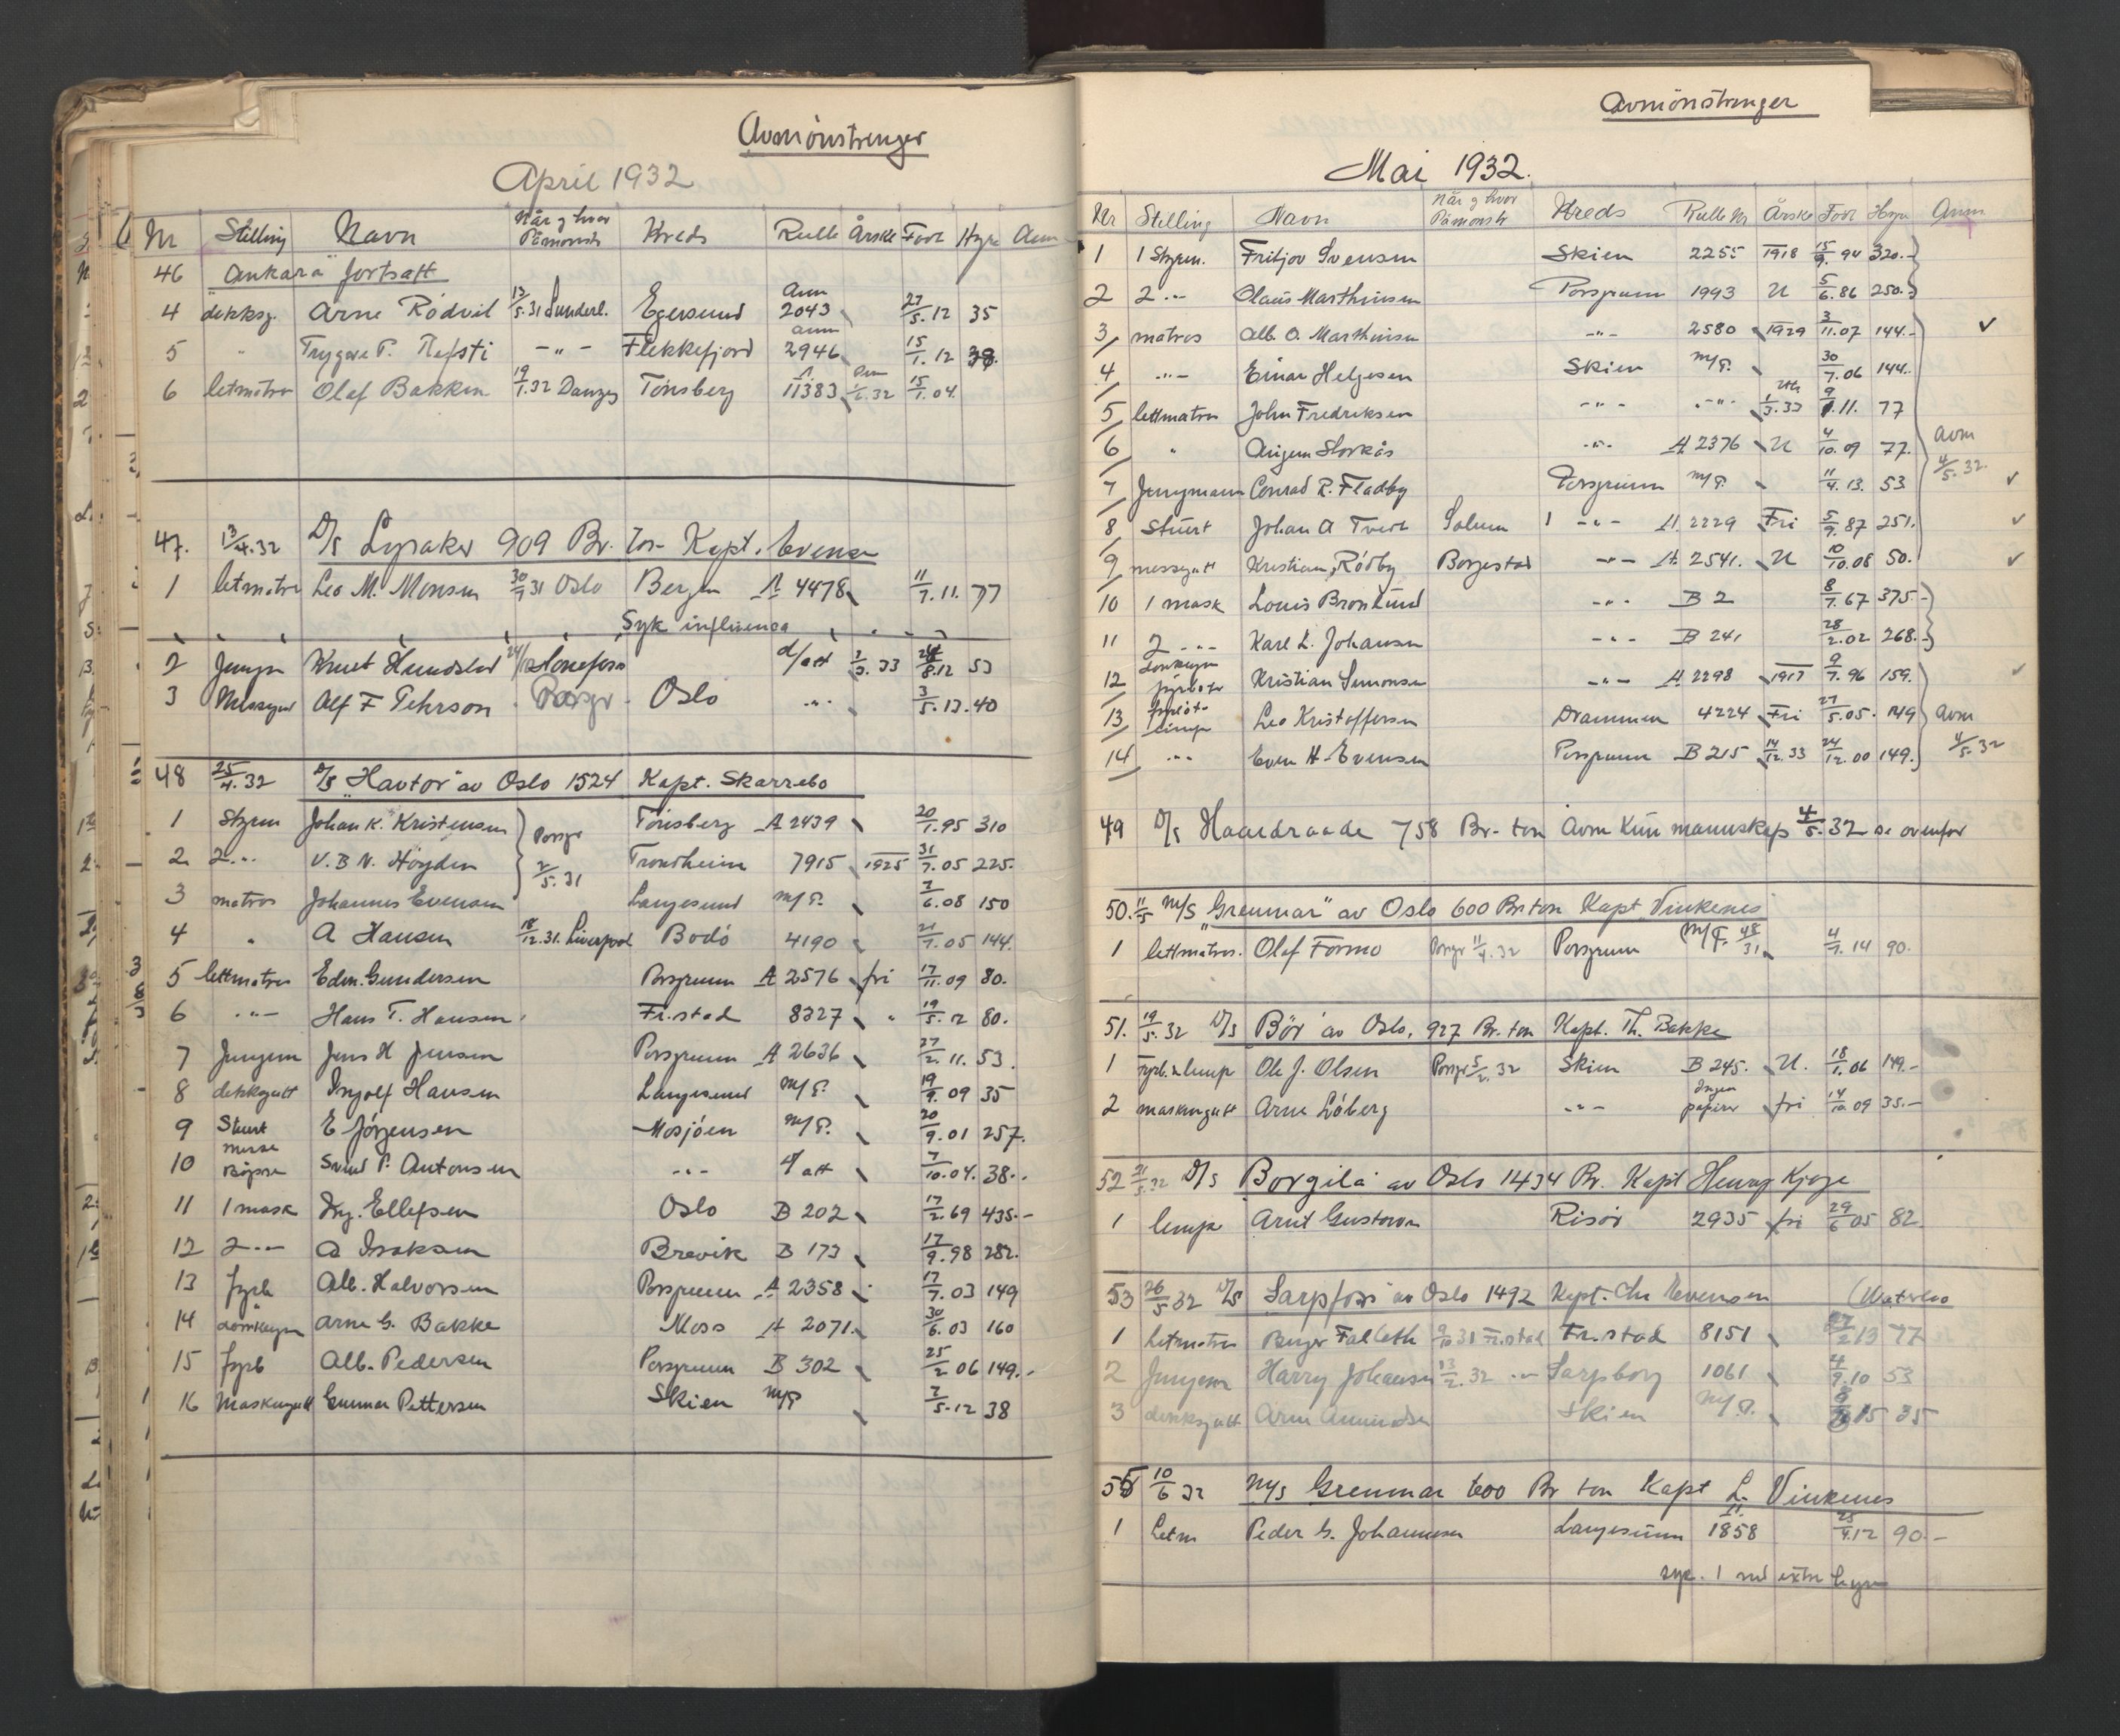 Avmönstrenger
April 1932
Nr Stilling Navn Når og hvor Påmönstr Kreds Rulle Årskl Födt Hyre Anm
46 "Ankara" fortsatt
4 dekksg. Arne Rödvil 13/5.31 Sunderl. Egersund Ann 2043 27/5.12 35
5 " Trygve T. Refsti -"- Flekkefjord ann 2946 15/1.12 38.
6 letmatr Olaf Bakken 19/1.32 Danzig Tönsberg A 11383 1/6.32 15/1.04
47. 13/4.32 D/S Lysaker 909 Br. Ton Kapt. Evensen
1 letmatr Leo M. Monsen 30/7 31 Oslo Bergen A 4478 11/7.11. 77
Syk influensa
2 Jungm Knut Hundstad Hönefoss d/att 2/3.33 24/8.12 53
3 Messegut Alf F Pehrson Porsgr. Oslo -"- 3/5.13. 40
48 25/4.32 D/S "Havtor" av Oslo 1524 Kapt. Skarrebo
1 Styrm Johan K. Kristensen Porsgr 2/5.31 Tönsberg A 2439 20/1.95 310
2 2 -"- V. B N. Höyden Trondheim 7915 1925 31/7.05 225.
3 matros Johannes Evensen Langesund m/P. 2/6.08 150
4 " A Hansen 18/12.31. Liverpool Bodö 4190 21/7.05 144.
5 lettmatros Edm. Gundersen Porsgrunn A 2576 fri 17/11.09 80.
6 -"- Hans T. Hansen Fr.stad 8327 " 19/5.12 80.
7 Jungm Jens H Jensen Porsgrunn A 2636 27/2.11. 53.
8 dekksgutt Ingolf Hansen Langesund m/P. 19/9.09 35
9 Stuert E Jörgensen Mosjöen m/P. 20/9.01 257.
10 messe Bysse Svend P. Antonsen -"- d/att 7/10.04. 38.-
11 1 mask Ing. Ellefsen Oslo B 202 17/2.69 435.-
12 2 -"- A Isaksen Brevik B 173 17/9.98 282.
13 fyrb Alb. Halvorsen Porsgrunn A 2358 17/7.03 149
14 donkeym Arne G. Bakke Moss A 2071 30/6.03 160
15 fyrb Alb. Pedersen Porsgrunn B 302 25/2 06 149.-
16 Maskingutt Gunnar Pettersen Skien m/P 2/5.12 38
Avmönstrenger
Mai 1932.
Nr Stilling Navn Når og hvor Påmönstr Kreds Rulle Nr Årskl Födt Hyre Anm
1 1 Styrm. Fritjov Svensen Skien 2255 1918 15/9.94 320.-
2 2 -"- Olaus Marthinsen Porsgrunn 1993 U 5/6.86 250.-
3/ matros Alb. O. Marthinsen -"- 2580 1929 3/11.07 144.-
4/ -"- Einar Helgesen Skien m/P. 30/7.06 144.
5/ lettmatros John Fredriksen -"- -"- uts 1/3.33 9/1.11. 77
6/ " Asgeir Storkås -"- A 2376 U 4/10.09 77. Avm 4/5.32.
7/ Jungmann Conrad R. Fladby Porsgrunn m/P. 11/4.13. 53
8/ Stuert Johan A Tveit Solum 1 -"- A 2229 Fri 5/9.87 251.
9/ messgutt Kristian Rödby Borgestad -"- A 2541. U 10/10.08 50.
10 1 mask Louis Bronlund -"- B 2 8/7.67 375.-
11 2 -"- Karl L. Johansen -"- B 241 28/2.02 268.-
12/ donkeym fyrböter Kristian Simonsen -"- A 2298 1917 9/7.96 159.
13/ fyrböt. lemp Leo Kristoffersen Drammen 4224 Fri 27/5.05. 149 Avm 4/5.32
14/ -"- Even H. Evensen Porsgrunn B 215 14/12.33 24/12.00 149.
49 D/s Haardraade 758 Br. ton Avm kun mannskap 4/5.32 se ovenfor
50. 11/5 M/S "Grenmar" av Oslo 600 Br ton Kapt. Vinkenes
1 lettmatros. Olaf Formo Porsgr 11/4.32 Porsgrunn (m/P. 48/31 4/7.14 90.
51. 19/5.32 D/s Bör av Oslo. 927 Br. ton Kapt. Th. Bakke
1 Fyrb. & lemp Ole J. Olsen Porsgr 5/2.32 Skien B 245. U. 18/1.06 149.-
2 maskingutt Arne Löberg -"- Ingen papirer fri 14/10 09 35.-
52 21/5.32 D/s Borgila av Oslo 1434 Br. Kapt Henry Kjøge
1 lemp Arnt Gustavsen Risör 2935 fri 29/6 05 82
53 26/5 32 D/S Sarpfoss av Oslo 1492 Kapt. Chr Evensen
1 Letmatros Birger Falleth 9/10 31 Fr.stad Fr.stad 8151 27/2 13 77
2 Jungm Harry Johansen 13/2.32 -"- Sarpborg 1061 4/9.10 53
3 dekksgutt Arne Amundsen Skien m/P. 15 35
55 10/6 32 M/s Grenmar 600 Br ton Kapt L. Vinkenes
1 Letm Peder G. Johannesen Langesund A 1858 25/4.12 90.-
syk. 1 md extra hyre